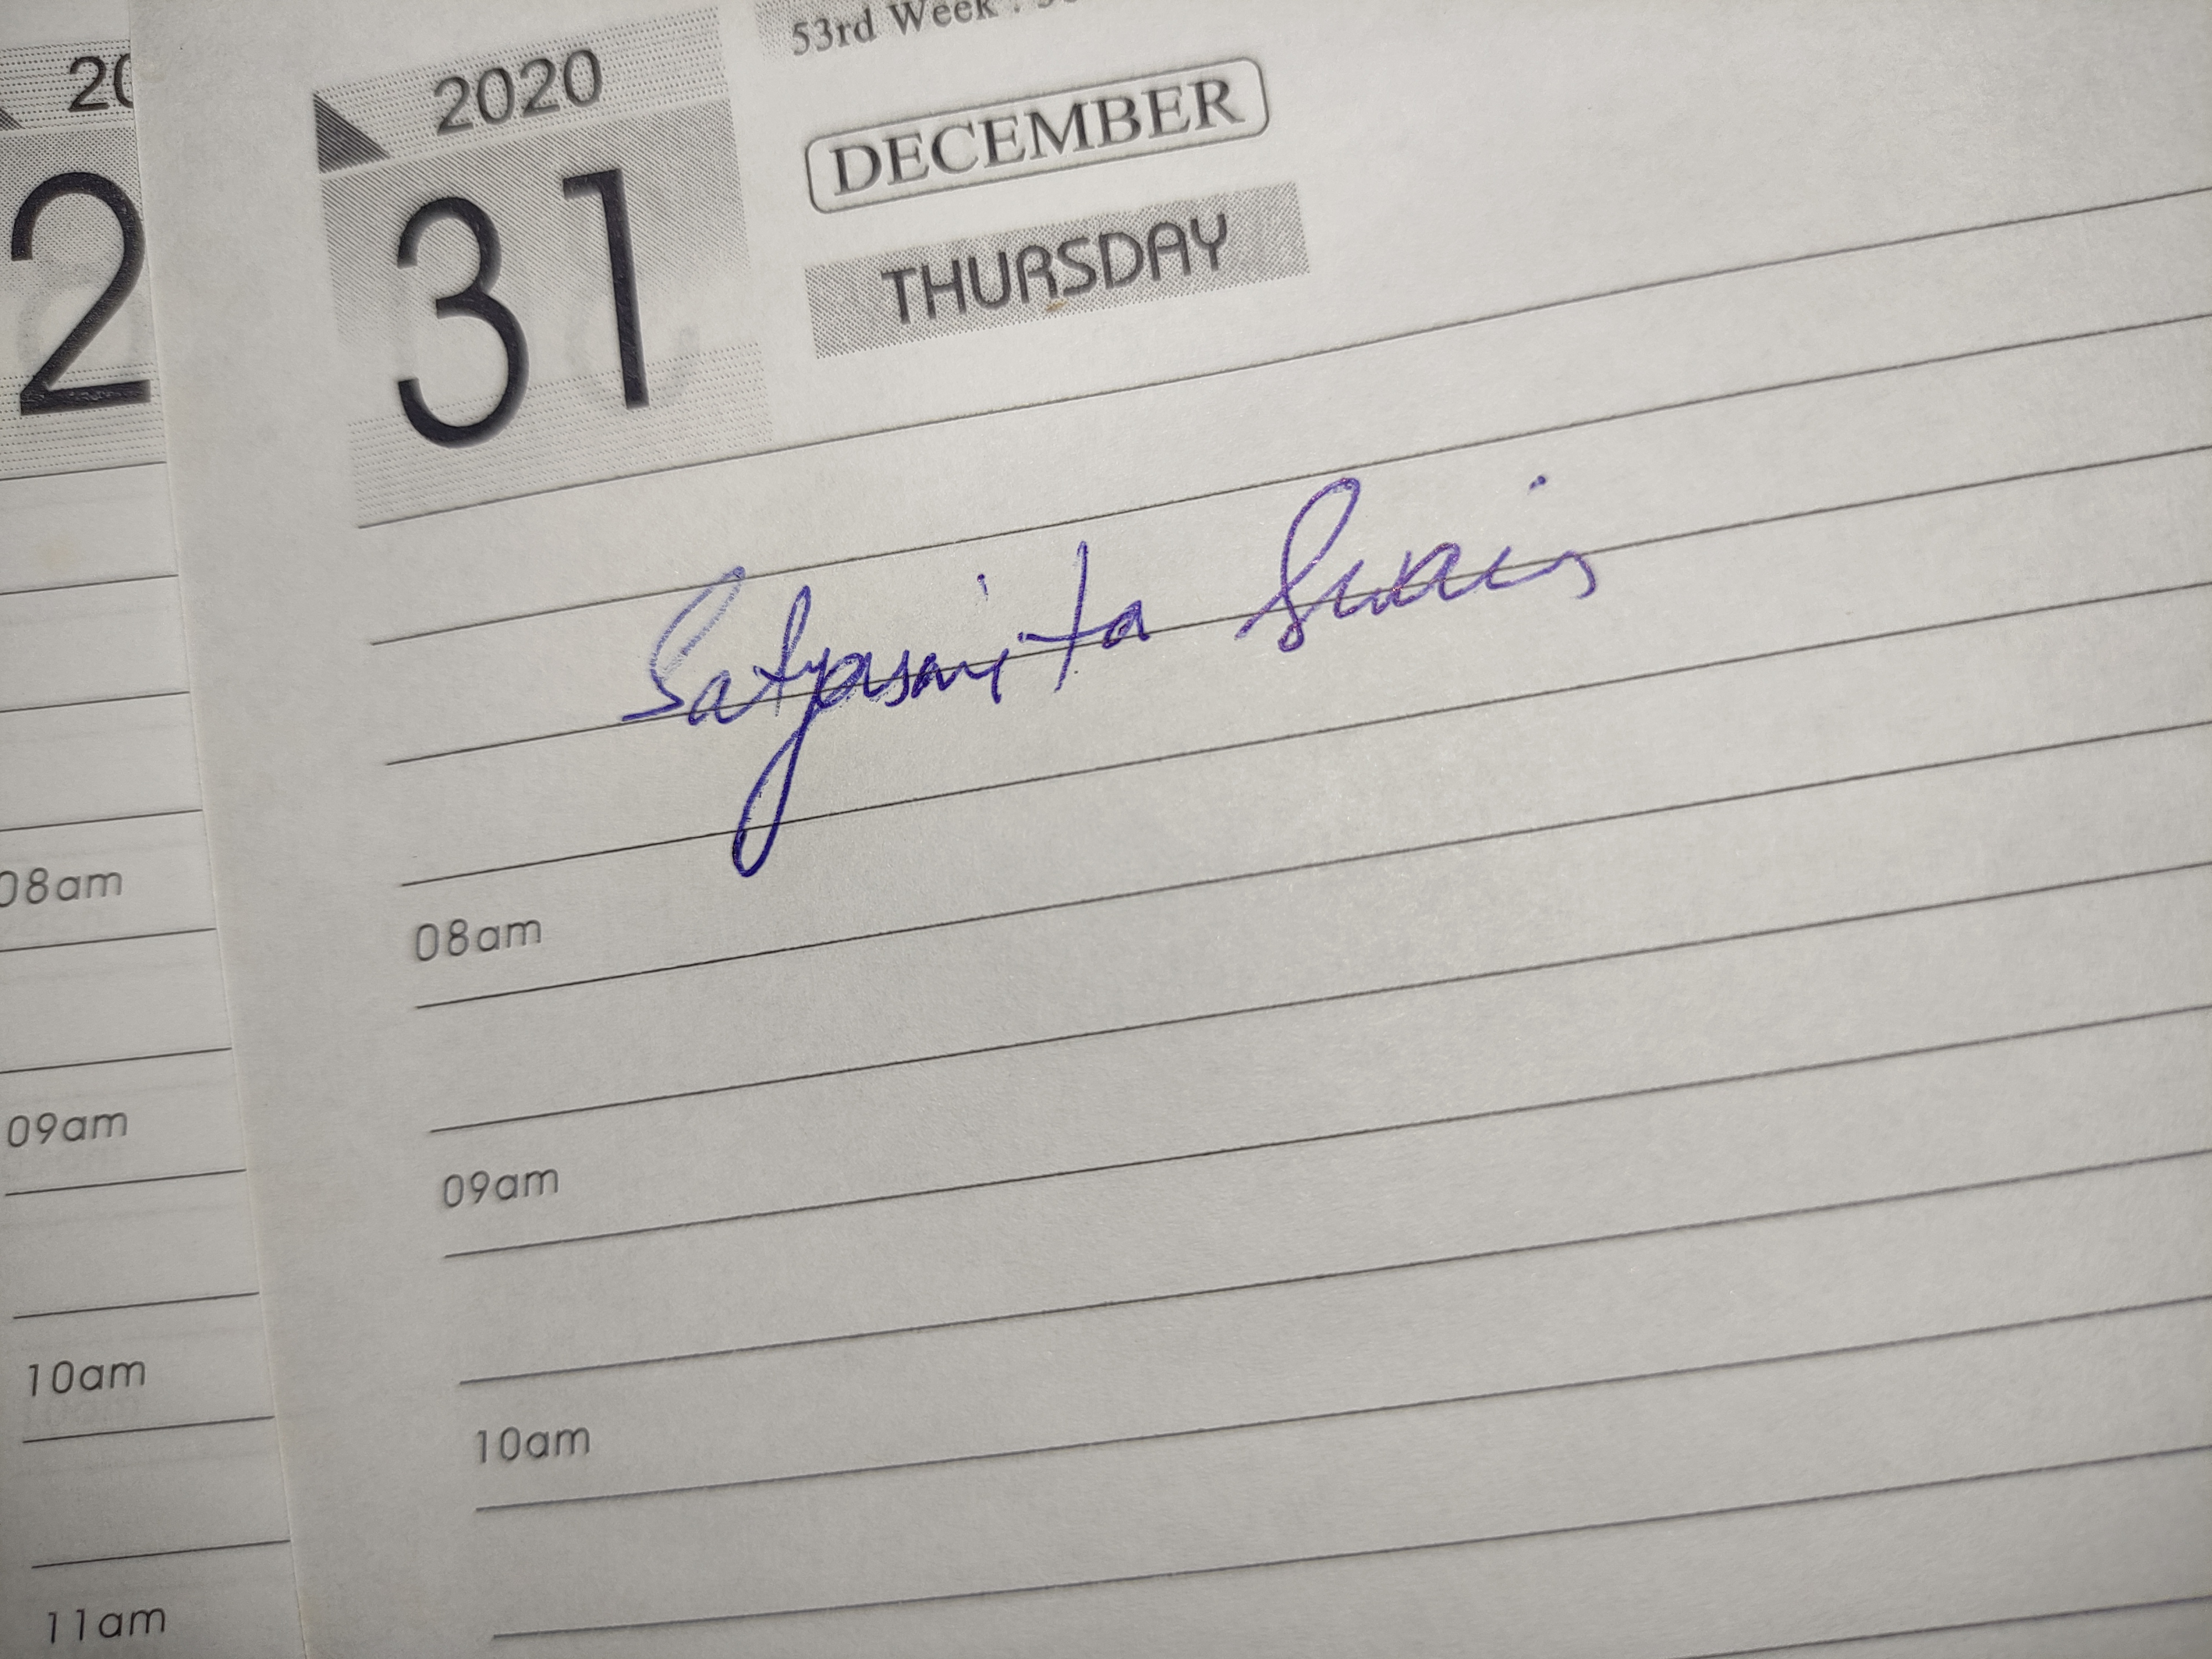 20
2
08am
09am
10am
11am
53rd Week
2020
31
DECEMBER
THURSDAY
Satyasmita Swain
08am
09am
10am